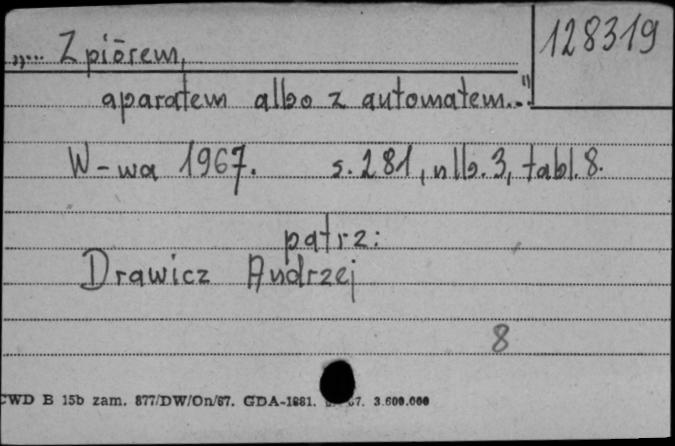 128319
„... Z piórem,
aparatem albo z automatem..."
W-wa 1967. s. 281, nlb. 3, tabl. 8.
patrz:
Drawicz Andrzej
8
CWD B 15b zam. 877/DW/On/67. GDA-1881. 67. 3.600.000